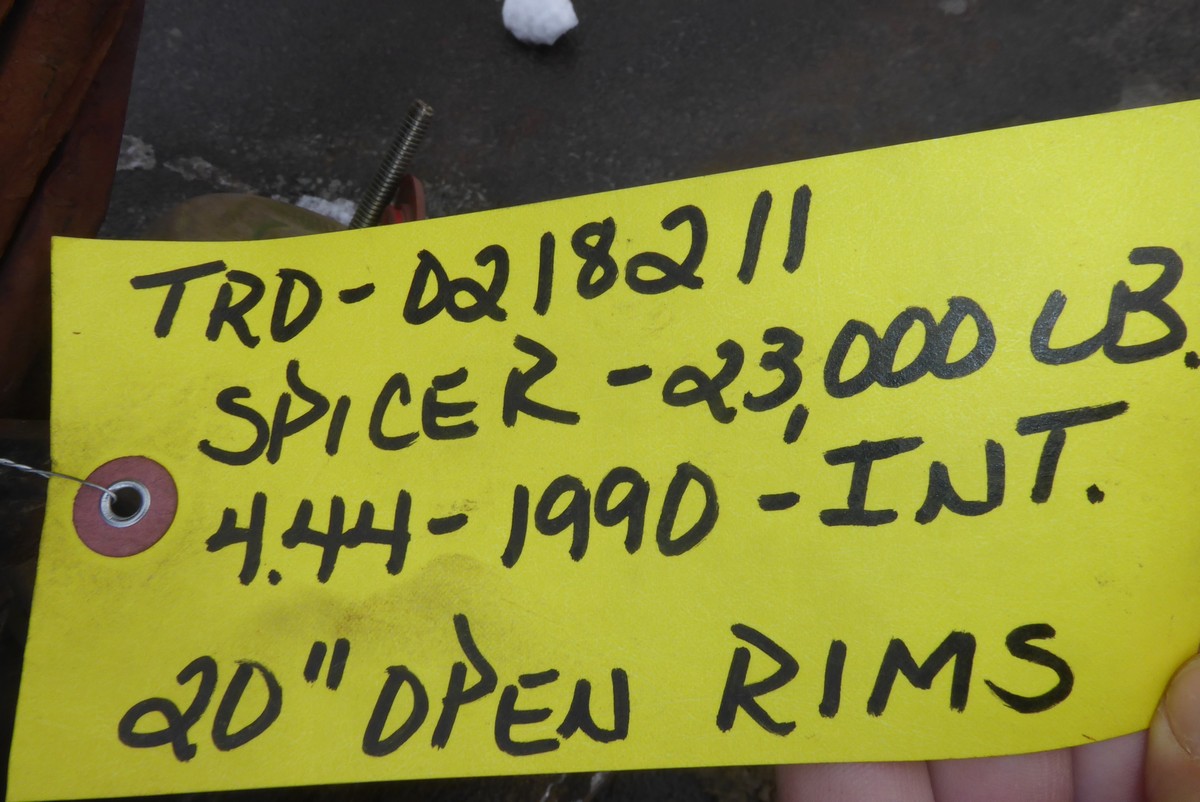 TRD-D218211
SPICER-23,000 LB.
4.44-1990-INT.
20" OPEN RIMS